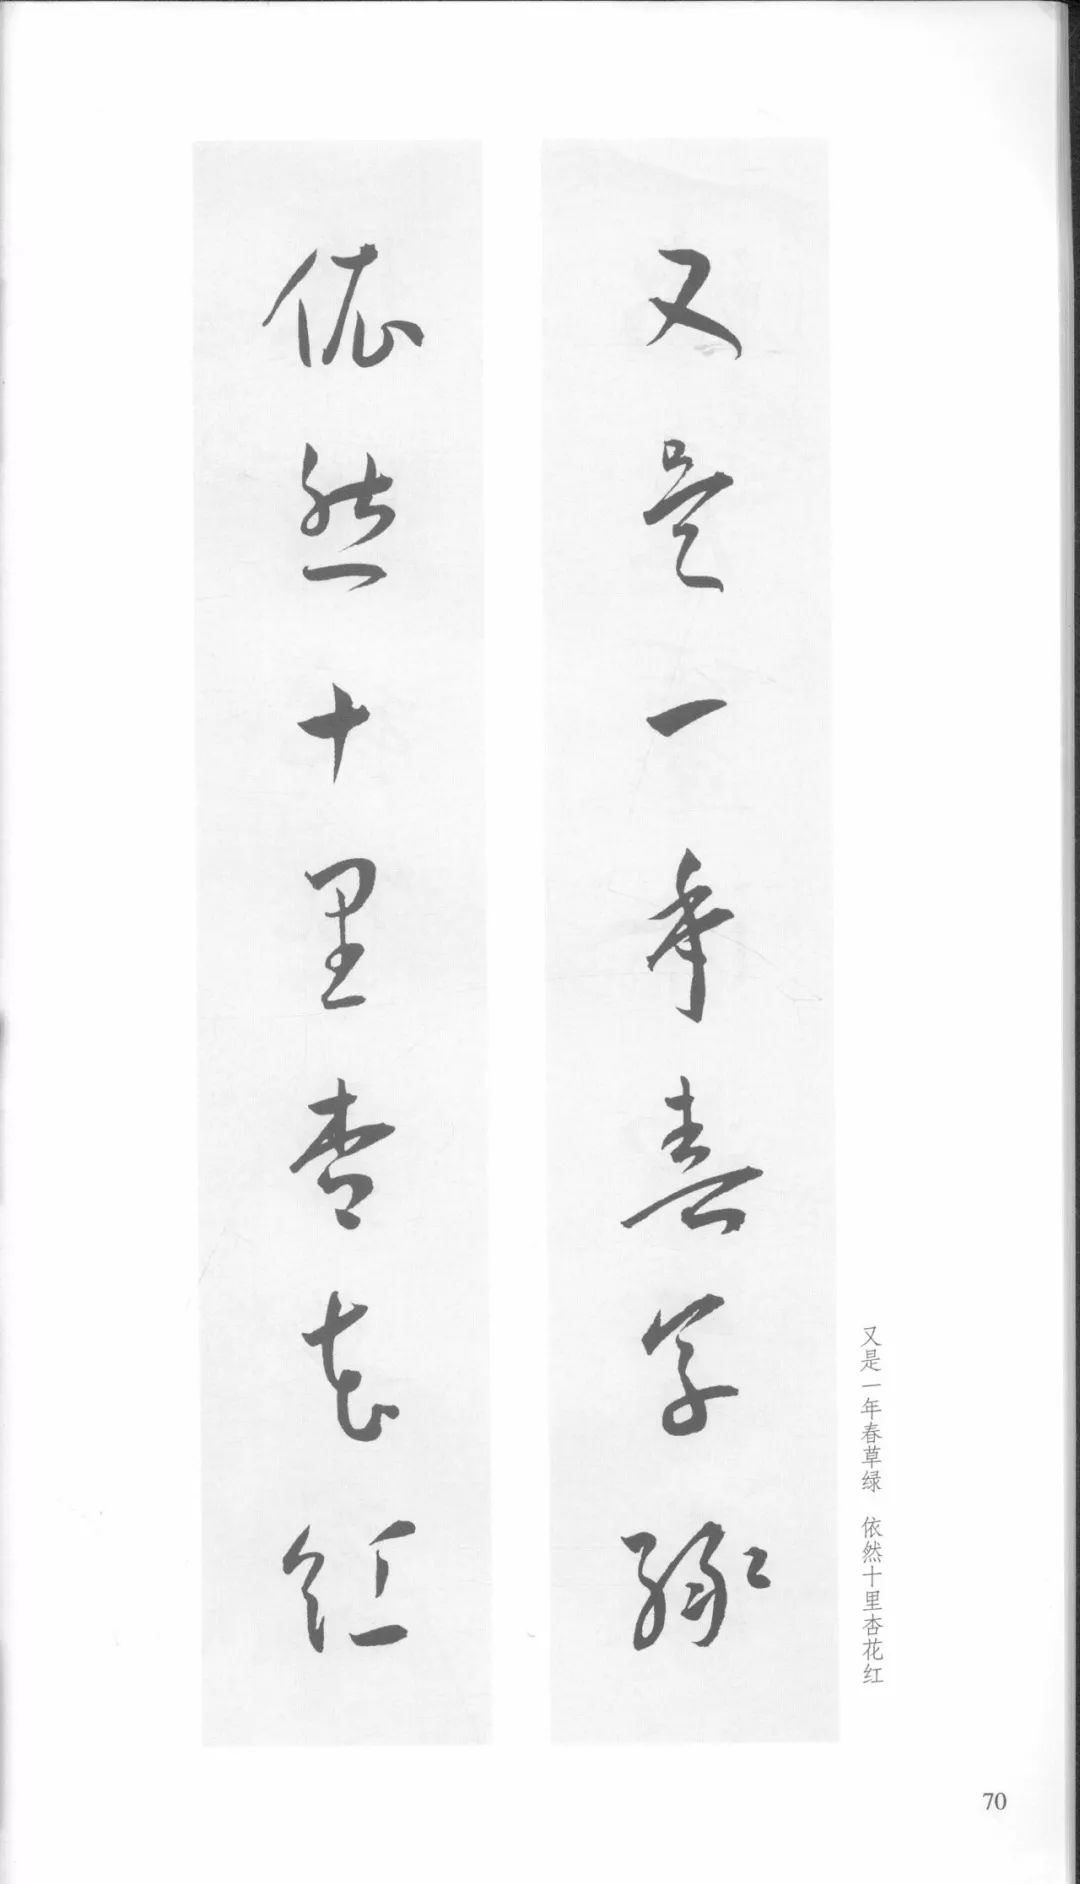 又是一年春草绿
依然十里杏花红
又是一年春草绿 依然十里杏花红
70